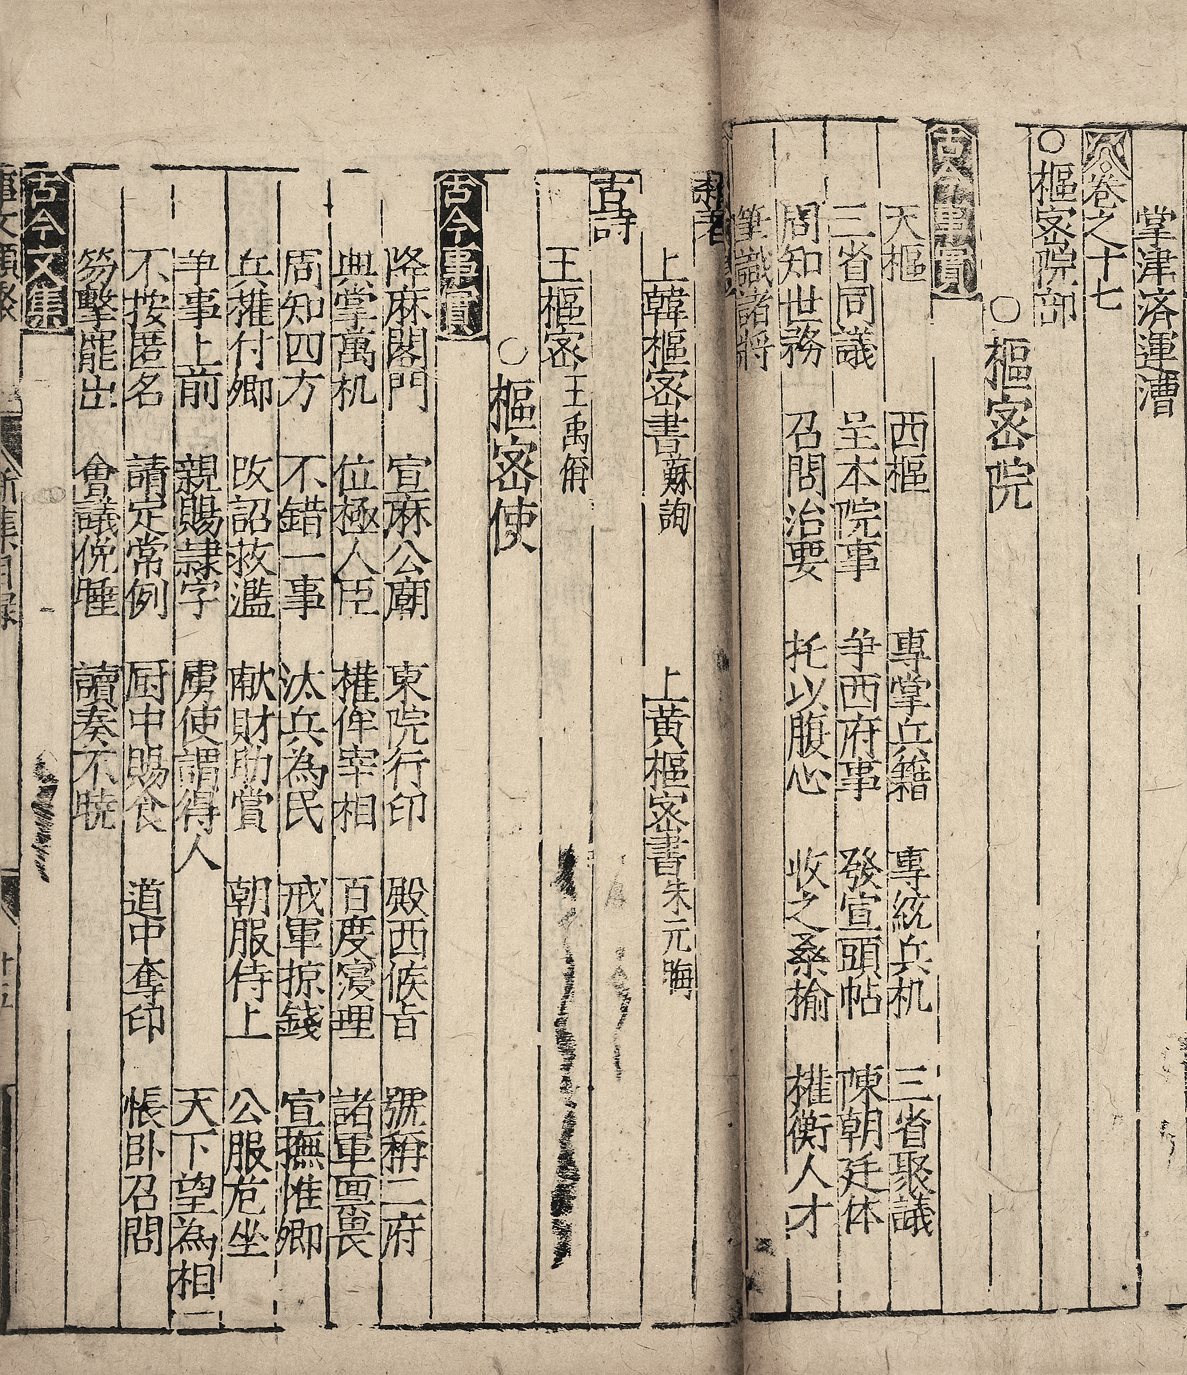 掌津済運漕
卷之十七
○樞密院部
○樞密院
古今事實
天樞 西樞 專掌兵籍 專統兵机 三省聚議
三省同議 呈本院事 争西府事 發宣頭帖 陳朝廷体
周知世務 召問治要 托以腹心 收之桑揄 權衡人才
筆識諸将
雜著
上韓樞密書蘇詢 上黄樞密書朱元晦
古詩
王樞密王禹偁
○樞密使
古今事實
降麻閣門 宣麻公廟 東院行印 殿西候旨 號稱二府
典掌萬机 位極人臣 權侔宰相 百度寖理 諸軍亶畏
周知四方 不錯一事 汰兵為民 戒軍掠錢 宣撫准卿
兵權付卿 改詔救濫 献財助賞 朝服侍上 公服危坐
争事上前 親賜隷字 虜使謂得人 天下望為相
不按匿名 請定常例 厨中賜食 道中奪印 帳卧召問
笏擊罷出 會議倪睡 讀奏不暁
古今文集